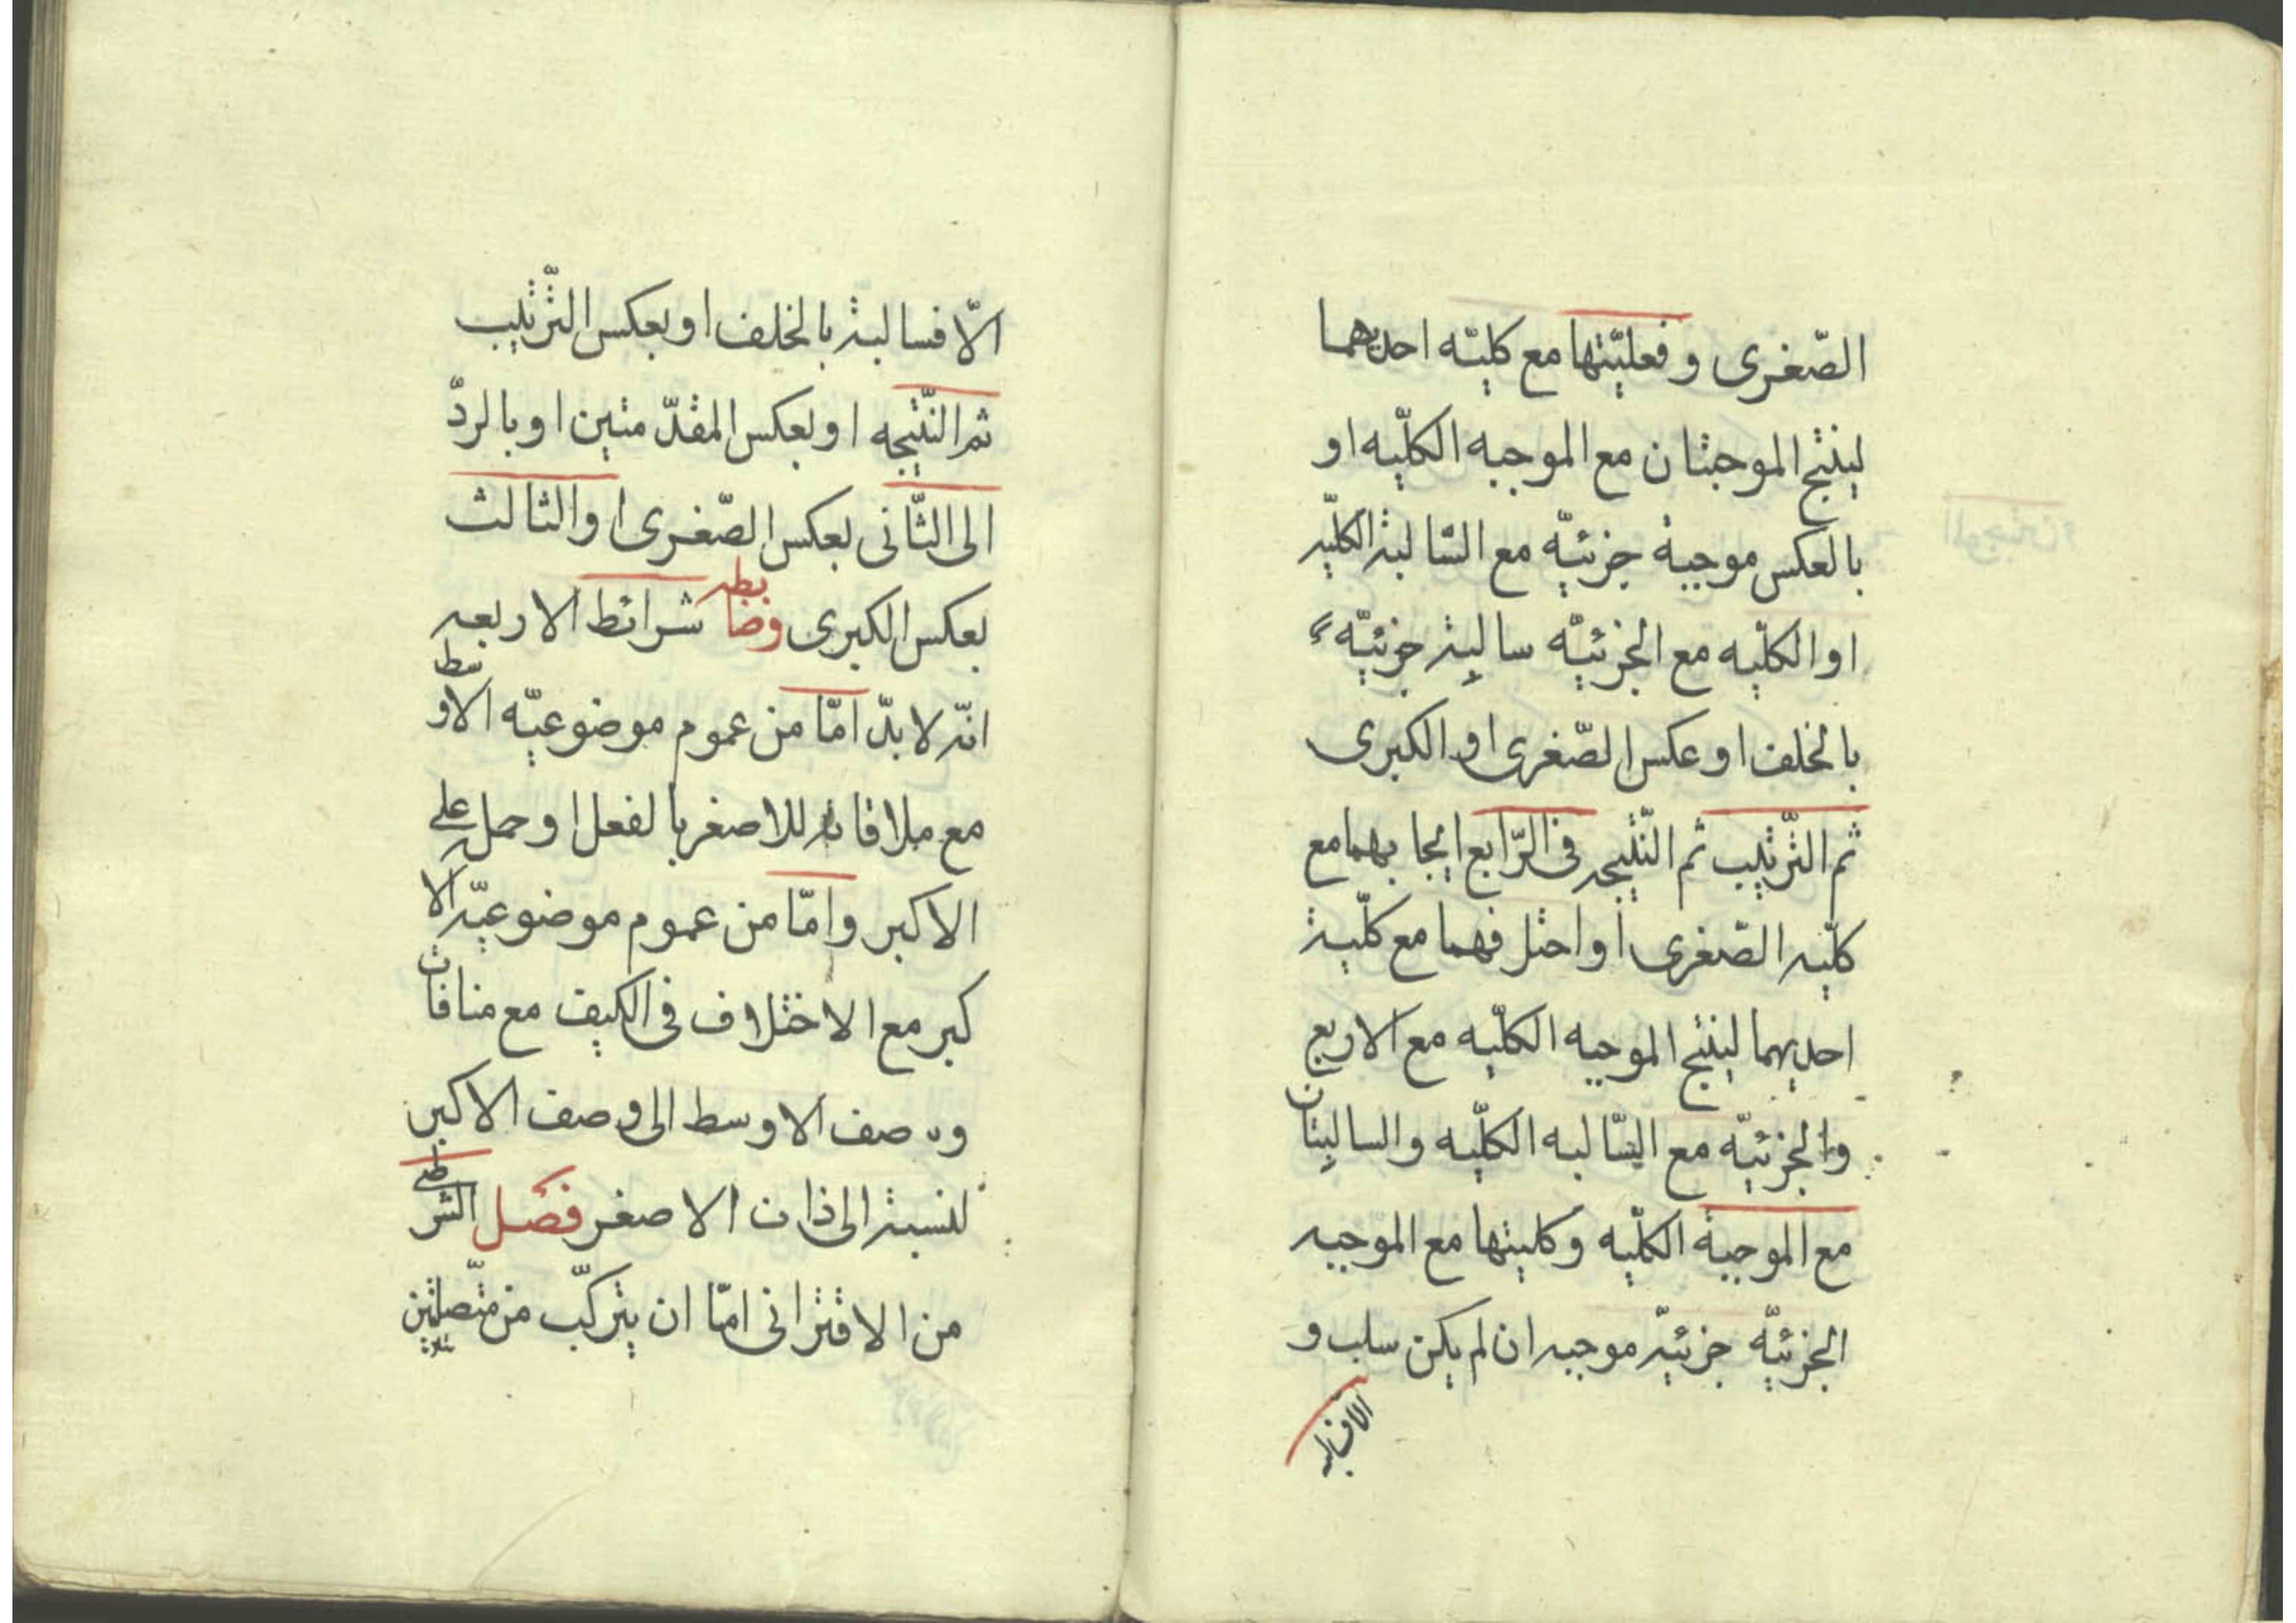 الصّغرى و فعليّتها مع كليّه احديهما
لينتج الموجبتان مع الموجبه الكلّيه او
بالعكس موجبة جزئيّه مع السّالبة الكلّيه
او الكلّيه مع الجزئيّه سالبة جزئيّه
بالخلف او عكس الصّغرى او الكبرى
ثم التّرتيب ثم النّتيجه فى الرّابع ايجابهما مع
كلّيه الصّغرى او اختلافهما مع كلّية
احديهما لينتج الموجبه الكلّيه مع الاربع
والجزئيّه مع السّالبه الكلّيه والسالبتان
مع الموجبة الكلّيه وكليتها مع الموجبه
الجزئيّه جزئيّه موجبه ان لم يكن سلب و
الا فسالبه
الّا فسالبة بالخلف او بعكس التّرتيب
ثم النّتيجه او بعكس المقدّمتين او بالردّ
الى الثّانى بعكس الصّغرى او الثالث
بعكس الكبرى وضابطه شرائط الاربعه
انّه لا بدّ امّا من عموم موضوعيّه الاوسط
مع ملاقاته للاصغر بالفعل او حمله على
الاكبر وامّا من عموم موضوعيّه الا
كبر مع الاختلاف فى الكيف مع منافات
وصف الاوسط الى وصف الاكبر
لنسبة الى ذات الاصغر فصل الشرطى
من الاقترانى امّا ان يتركّب من متّصلتين